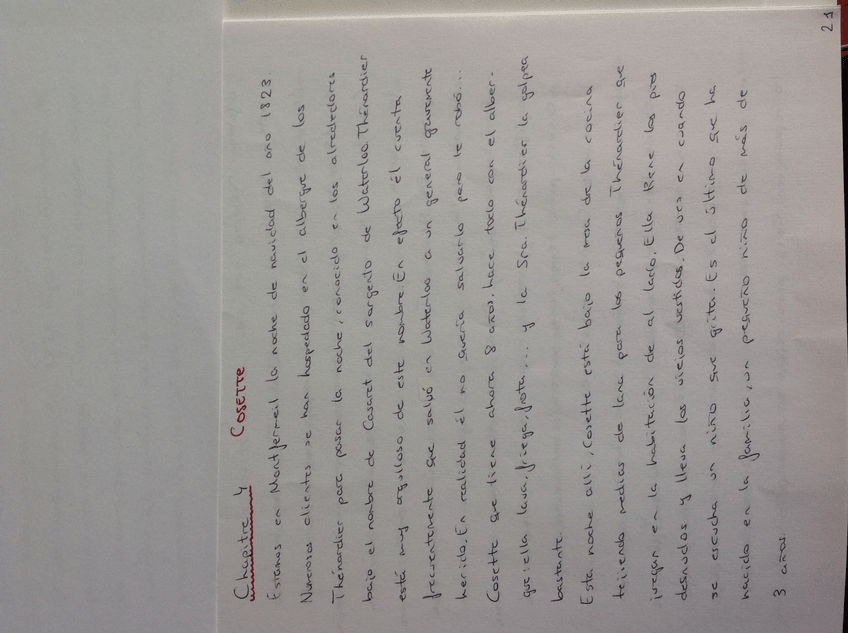 Chapitre 4 COSETTE
Estamos en Montfermeil la noche de navidad del año 1823.
Numerosos clientes se han hospedado en el albergue de los
Thénardier para pasar la noche, conocido en los alrededores
bajo el nombre de Casaret del sargento de Waterloo. Thénardier
está muy orgulloso de este nombre. En efecto él cuenta
frecuentemente que salvó en Waterloo a un general gravemente
herido. En realidad él no quería salvarlo pero le robó...
Cosette que tiene ahora 8 años, hace todo con el alber-
gue: ella lava, friega, frota... y la Sra. Thénardier la golpea
bastante.
Esta noche allí, Cosette está bajo la mesa de la cocina
tejiendo medias de lana para los pequeños Thénardier que
juegan en la habitación de al lado. Ella tiene los pies
desnudos y lleva los viejos vestidos. De vez en cuando
se escucha un niño que grita. Es el último que ha
nacido en la familia, un pequeño niño de más de
3 años.
21